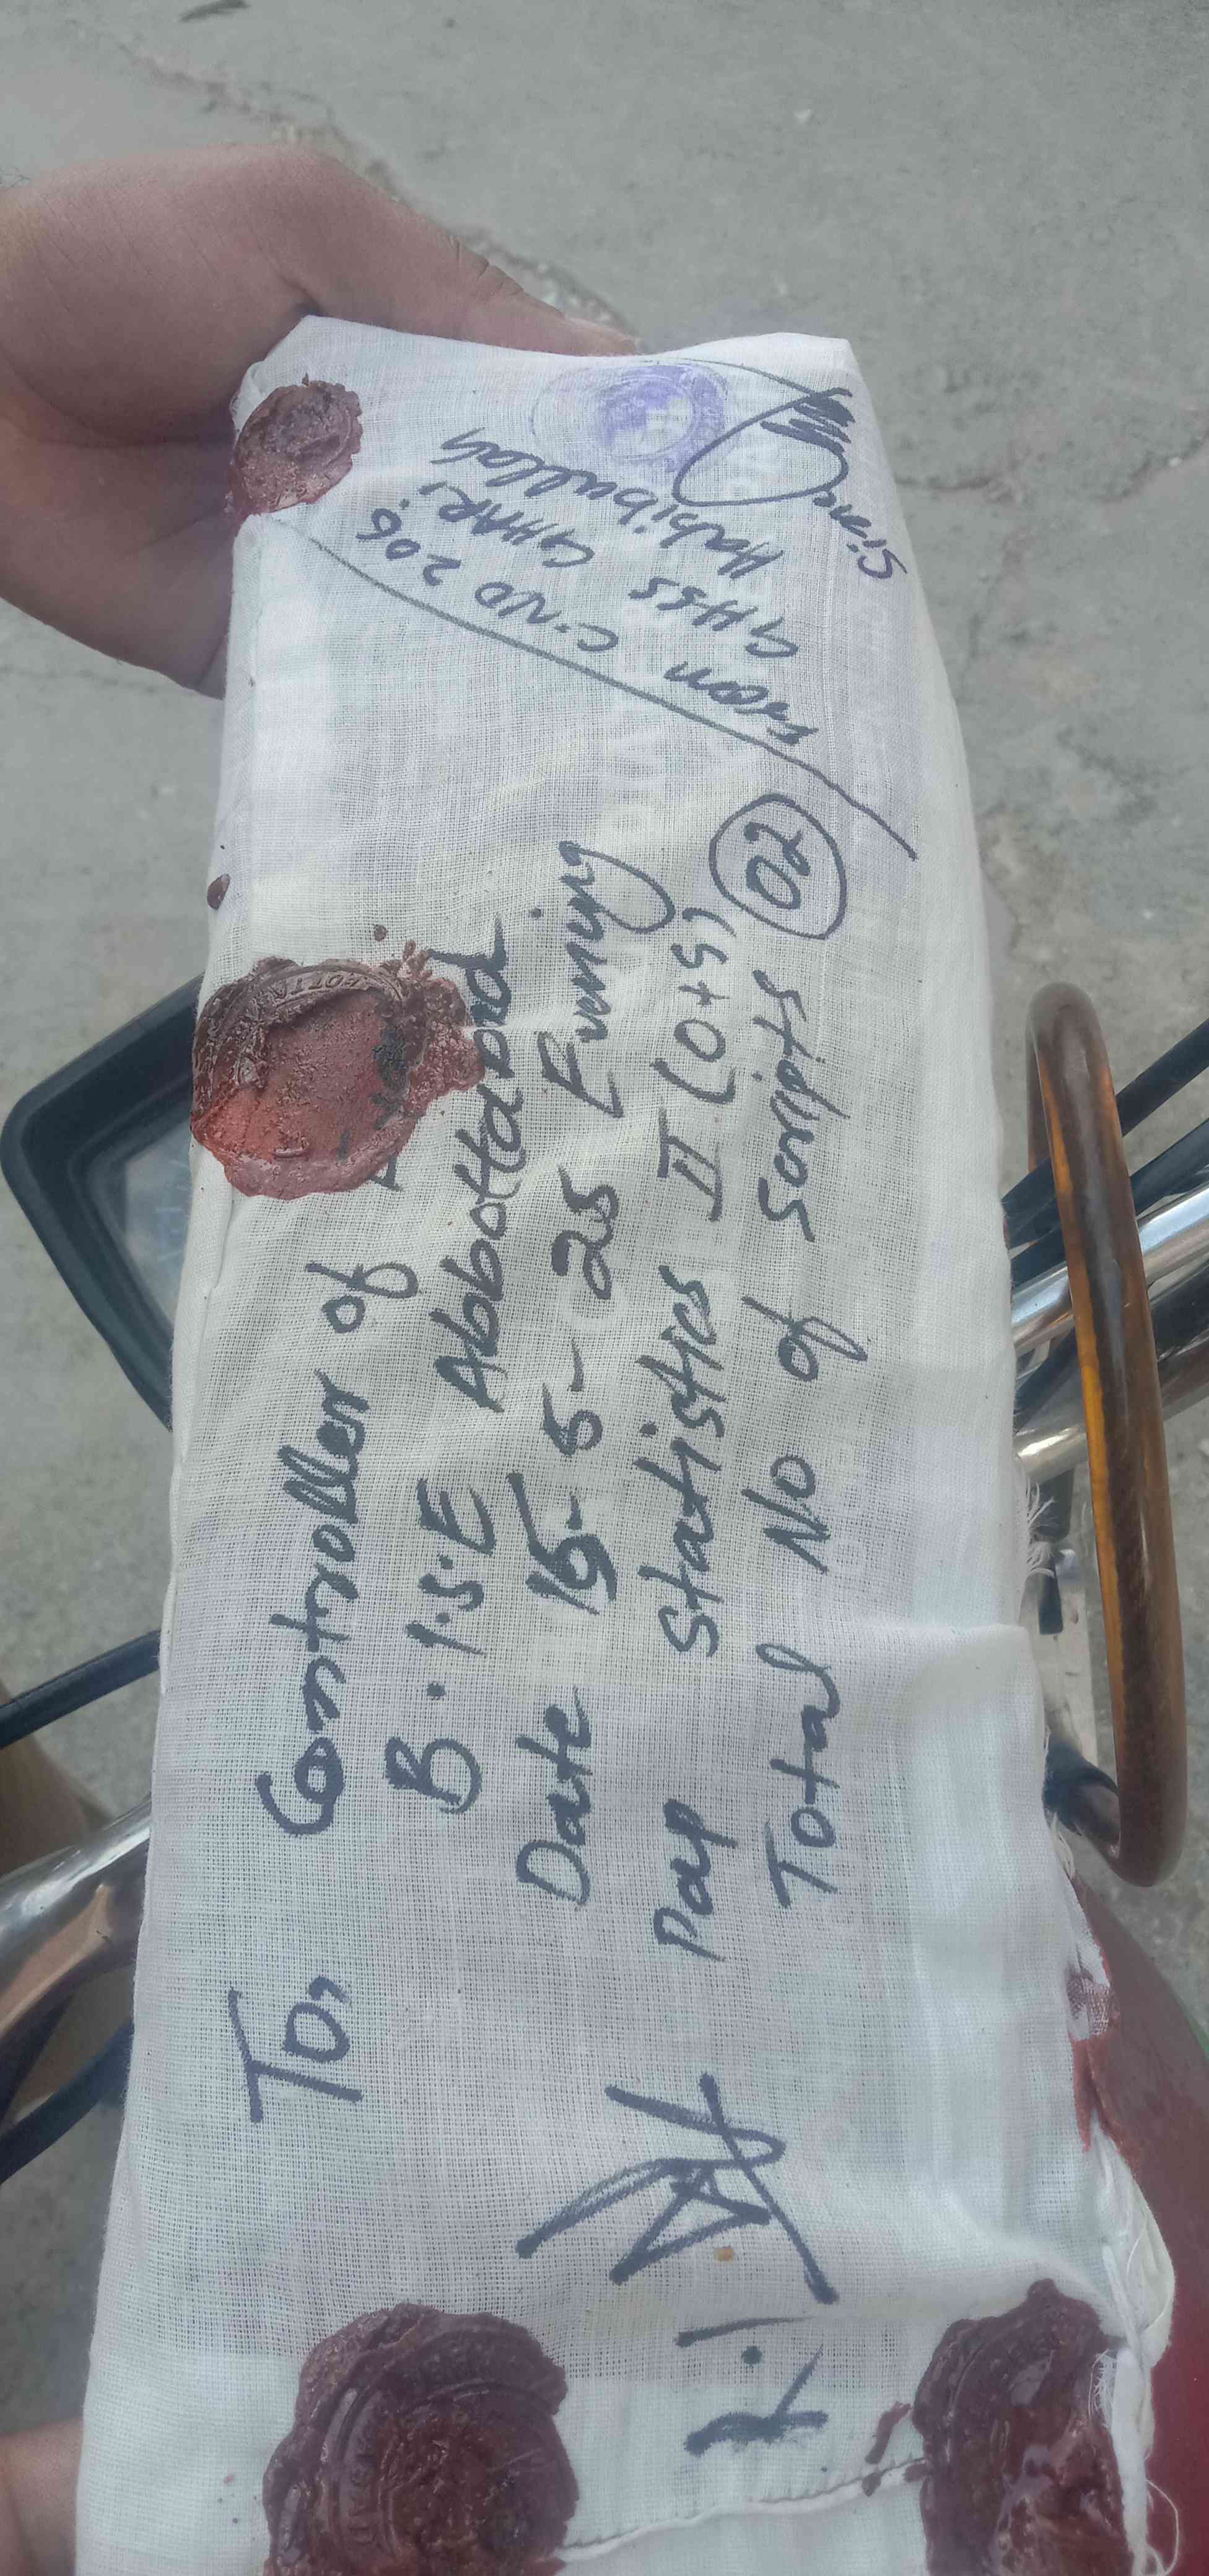 To, Controller of
B.I.S.E Abbottabad
Date 15-5-25 Evening
Pap Statistics II (O+S)
Total No of Scripts 02
From C.NO 206
GHSS GHARI
Habibullah